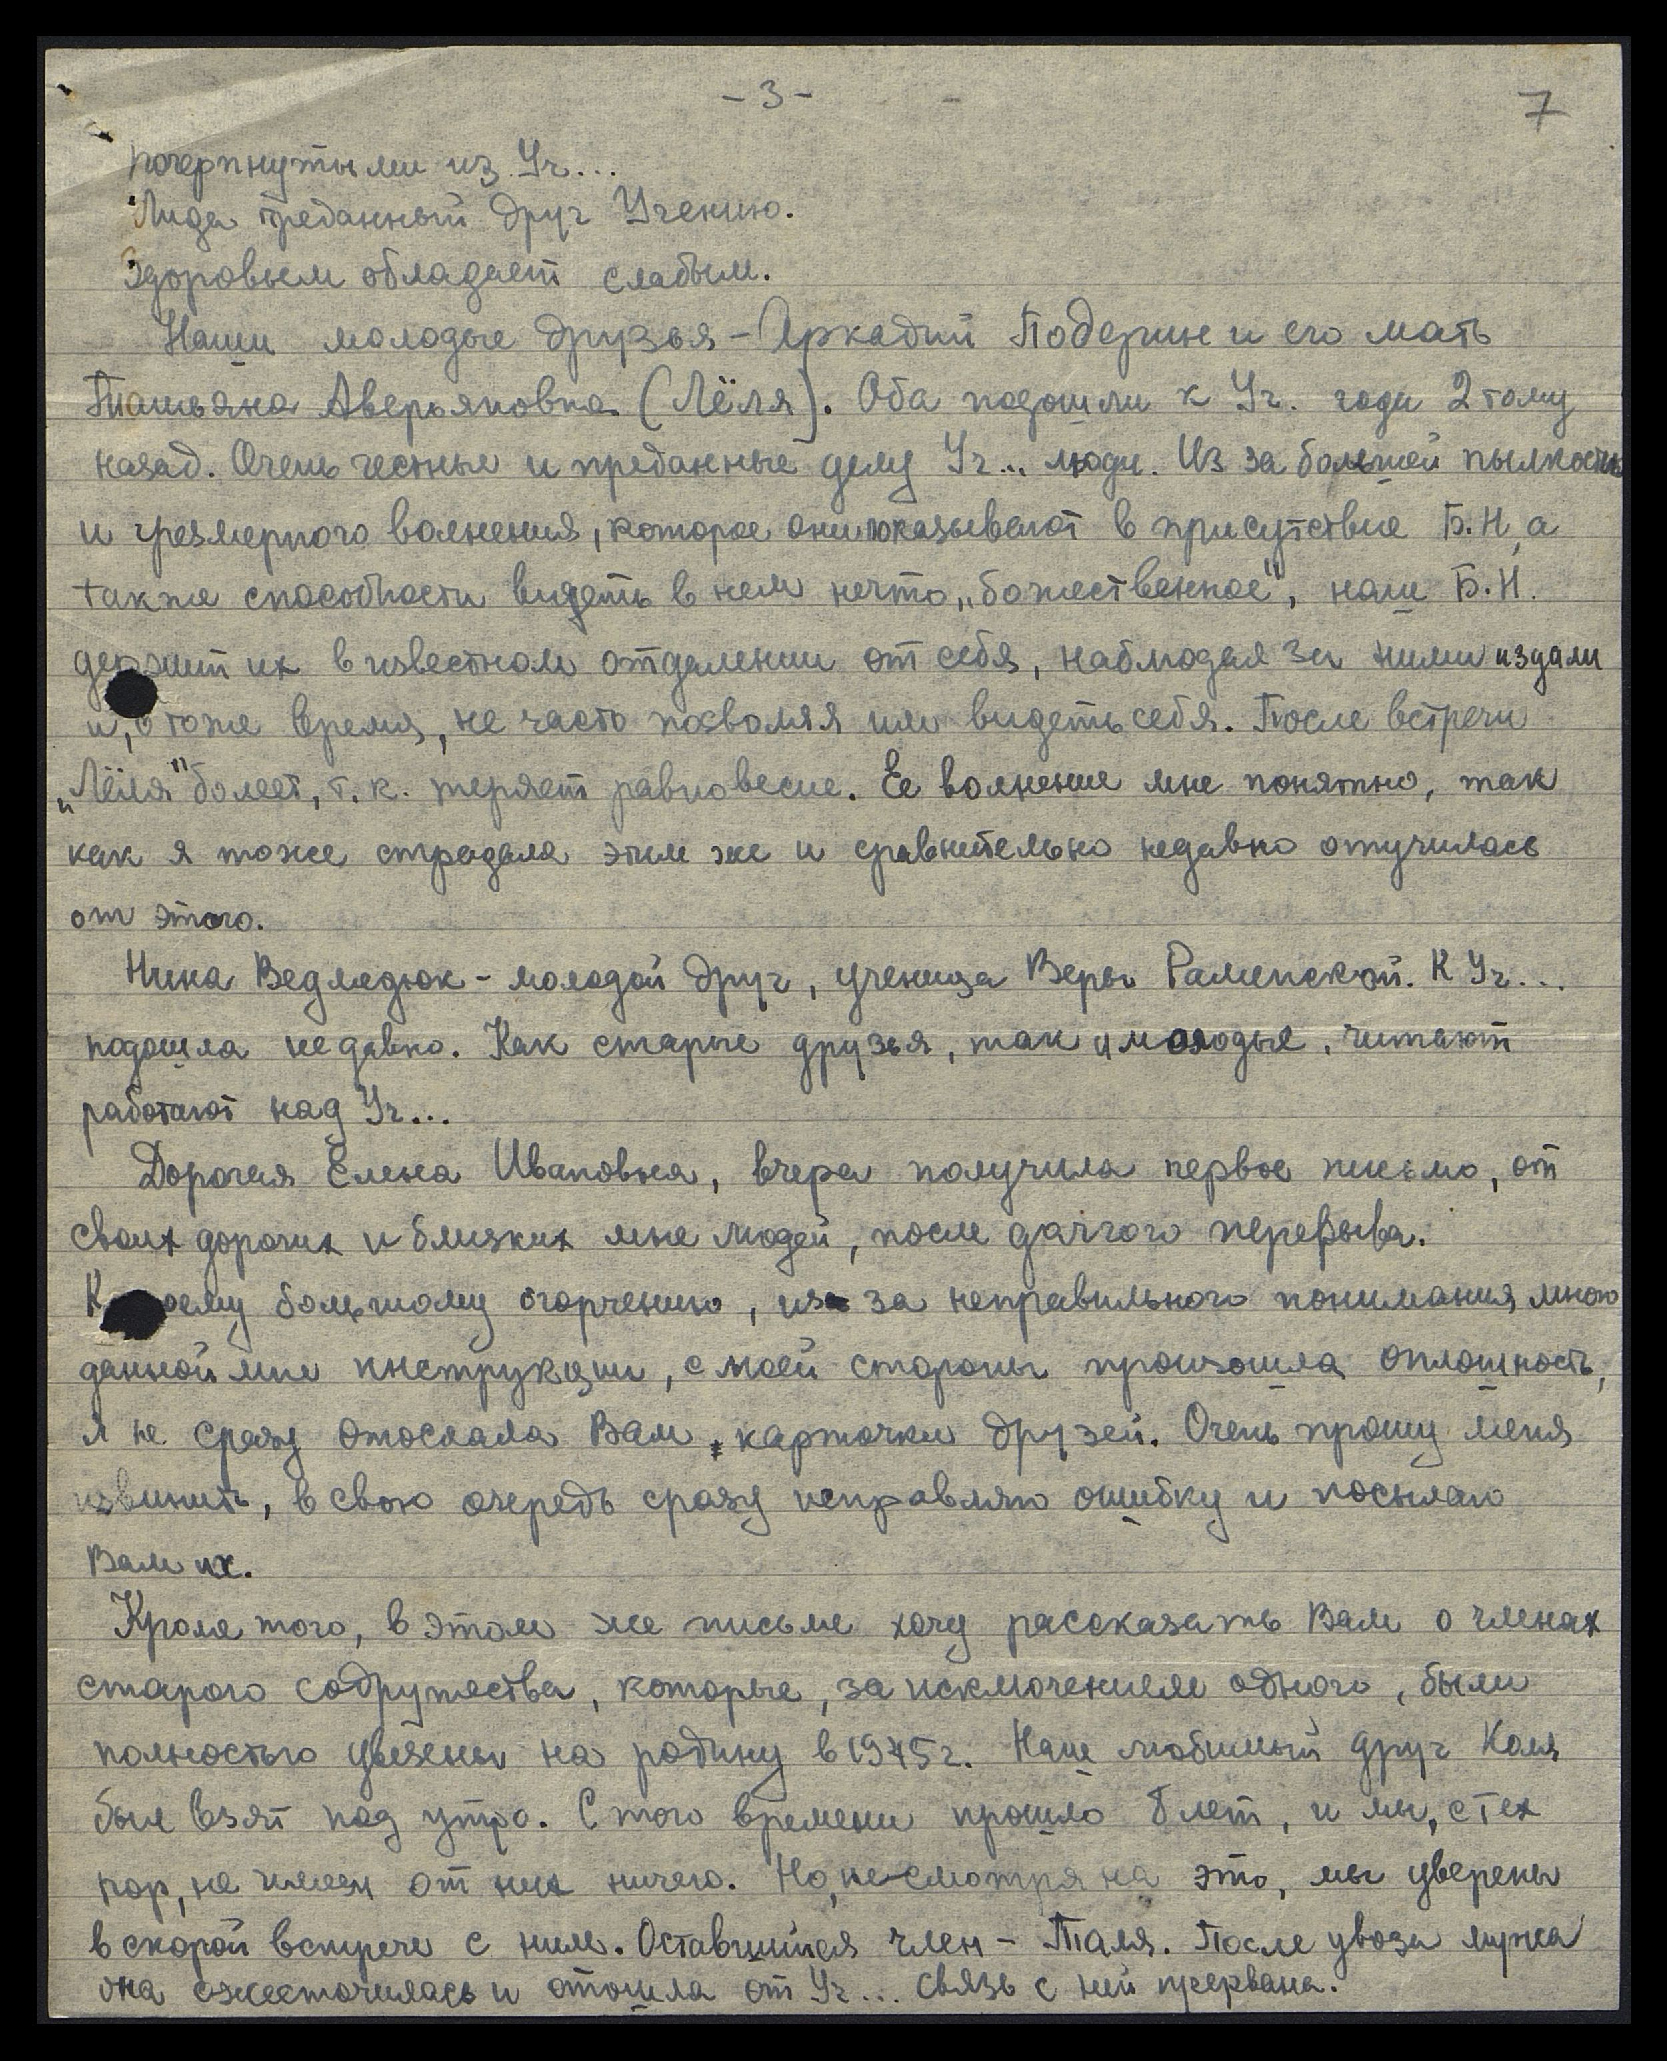 - 3 -
7
почерпнутыми из Уч...
Лида преданный друг Учению.
Здоровьем обладает слабым.
Наши молодые друзья - Аркадий Подерин и его мать
Татьяна Аверьяновна (Лёля). Оба подошли к Уч. года 2 тому
назад. Очень честные и преданные делу Уч... люди. Из за большой пылкости
и чрезмерного волнения, которое они показывают в присутствие Б.Н, а
также способности видеть в нем нечто „божественное", наш Б.Н.
держит их в известном отдалении от себя, наблюдая за ними издали
и, в тоже время, не часто позволяя им видеть себя. После встречи
„Лёля" болеет, т.к. теряет равновесие. Ее волнение мне понятно, так
как я тоже страдала этим же и сравнительно недавно отучилась
от этого.
Нина Ведмедюк - молодой друг, ученица Веры Раменской. К Уч...
подошла недавно. Как старые друзья, так и молодые, читают
работают над Уч...
Дорогая Елена Ивановна, вчера получила первое письмо, от
своих дорогих и близких мне людей, после долгого перерыва.
К моему большому огорчению, из за неправильного понимания мною
данной мне инструкции, с моей стороны произошла оплошность,
я не сразу отослала Вам карточки друзей. Очень прошу меня
извинить, в свою очередь сразу исправляю ошибку и посылаю
Вам их.
Кроме того, в этом же письме хочу рассказать Вам о членах
старого содружества, которые, за исключением одного, были
полностью увезены на родину в 1945 г. Наш любимый друг Коля
был взят под утро. С того времени прошло 8 лет, и мы, с тех
пор, не имеем от них ничего. Но, не смотря на это, мы уверены
в скорой встрече с ним. Оставшийся член - Таля. После увоза мужа
она ожесточилась и отошла от Уч... связь с ней прервана.